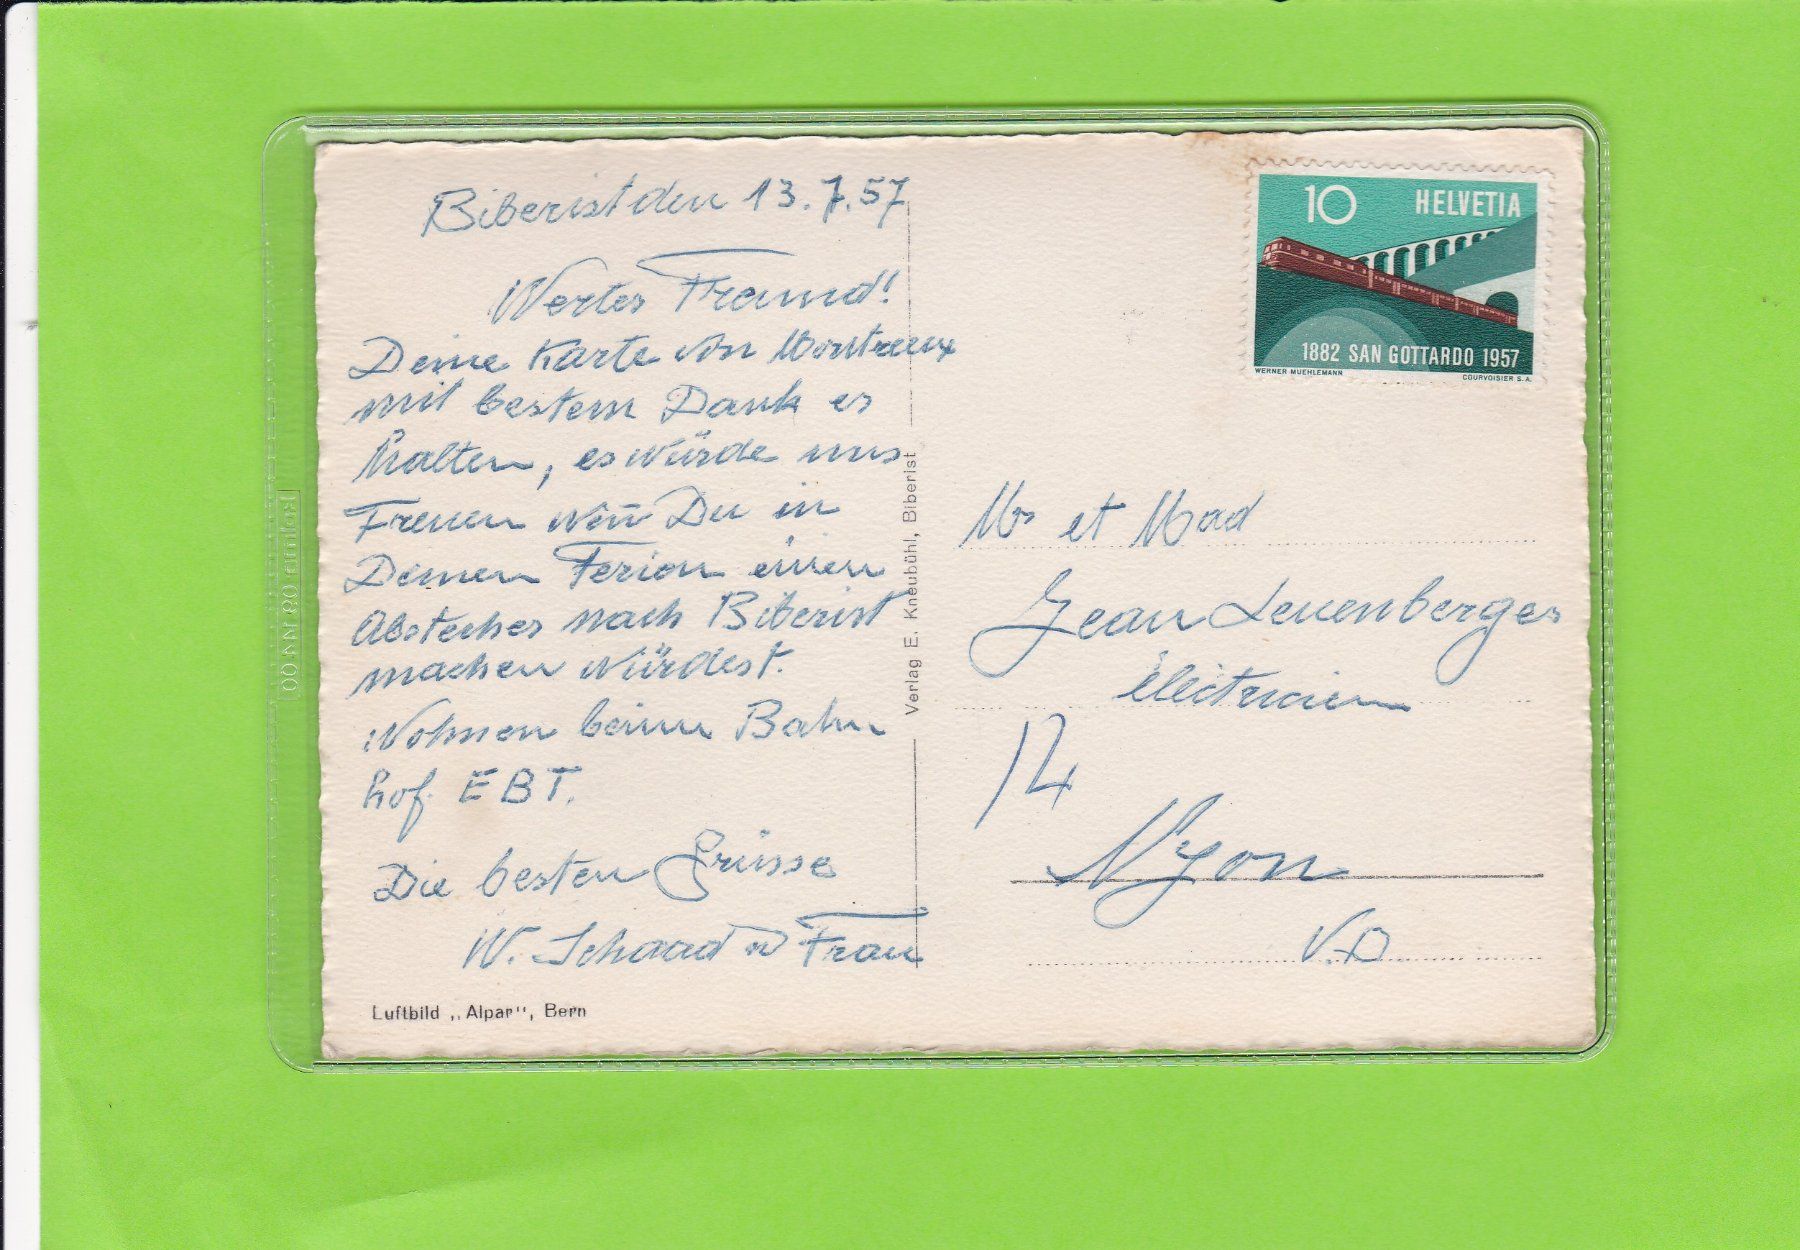 Biberist den 13.7.57
Werter Freund!
Deine Karte von Montreux
mit bestem Dank er
halten, es würde uns
Freuen wen̄ Du in
Deinen Ferien einen
Abstecher nach Biberist
machen würdest.
Wohnen beim Bahn
hof. EBT.
Die besten Grüsse
W. Schaad u Frau
Luftbild „Alpar", Bern
Verlag E. Kneubühl, Biberist
10 HELVETIA
1882 SAN GOTTARDO 1957
WERNER MUEHLEMANN COURVOISIER S.A.
Mr et Mad
Jean Leuenberger
électricien
14
Nyon
V.D